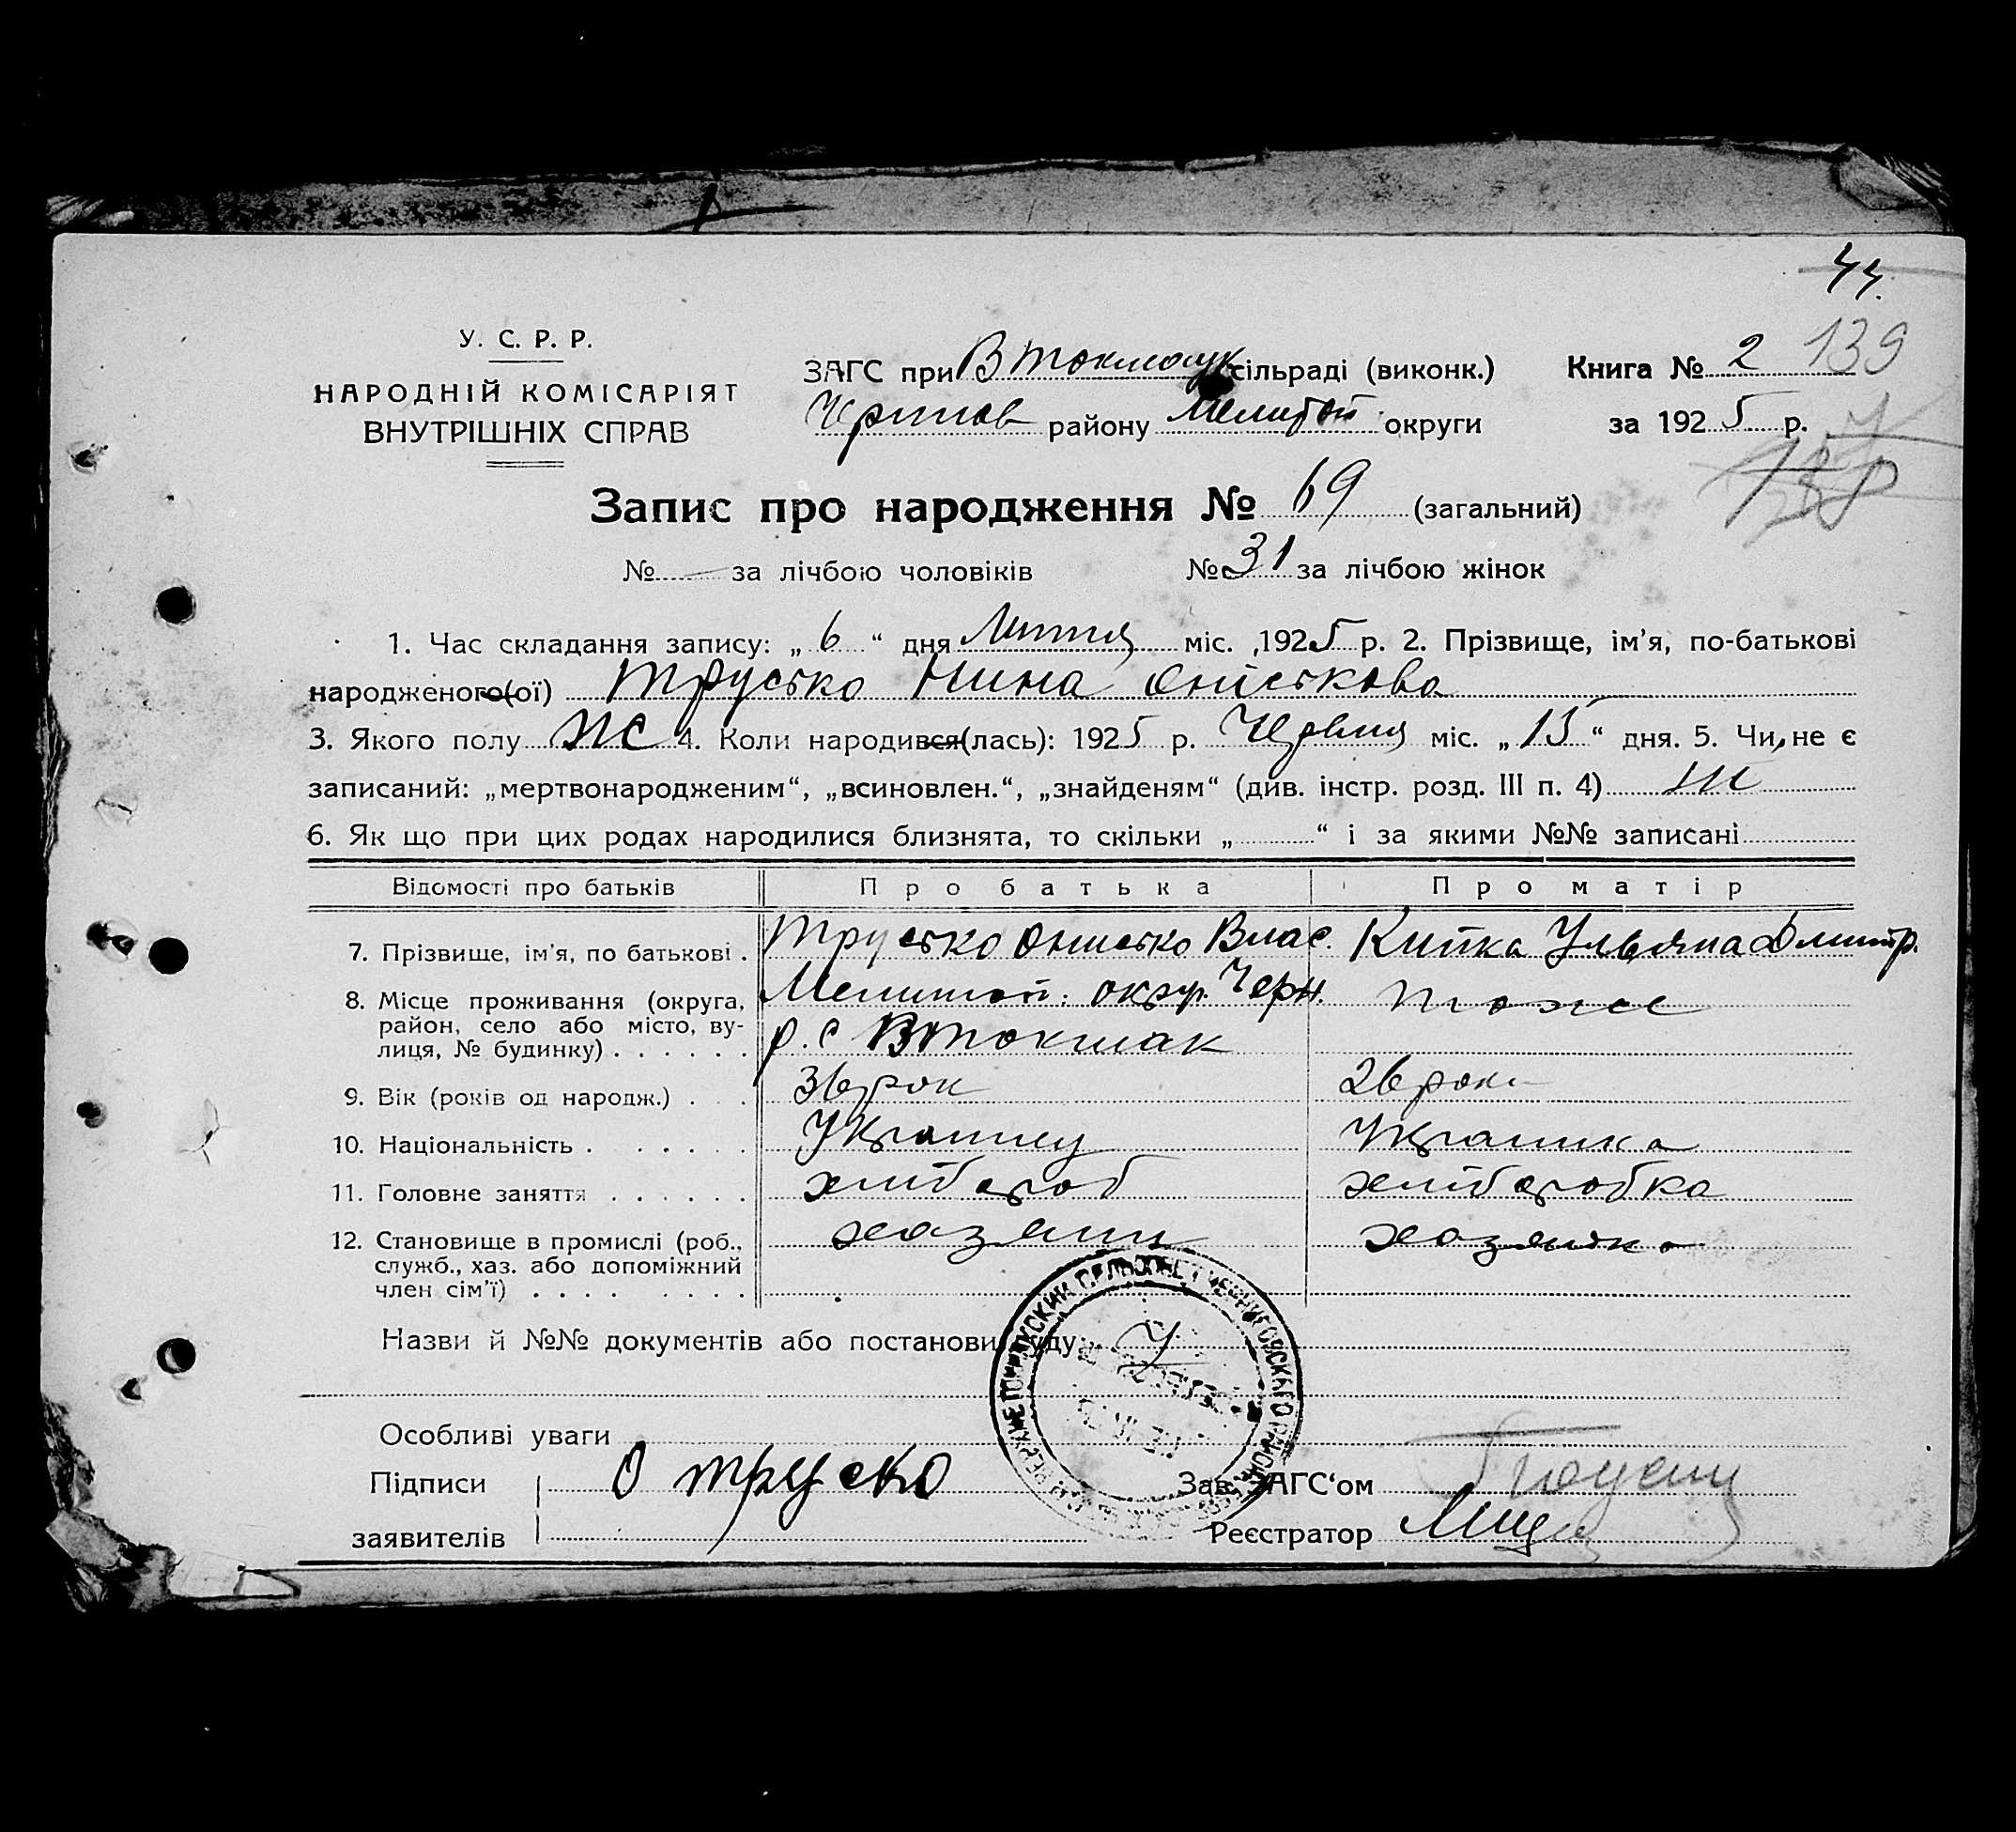 44.
У. С. Р. Р.
НАРОДНІЙ КОМІСАРІЯТ
ВНУТРІШНІХ СПРАВ
ЗАГС при В Токмацк сільраді (виконк.)
Книга № 2 139
Черниг району Мелитоп. округи
за 1925 р.
Запис про народження № 69 (загальний)
№ — за лічбою чоловіків № 31 за лічбою жінок
1. Час складання запису: „ 6 “ дня Липня міс. ,1925 р. 2. Прізвище, ім'я, по-батькові
народженого(ої) Трусько Нина Оніськова
3. Якого полу Ж 4. Коли народився(лась): 1925 р. Червня міс. „ 15 “ дня. 5. Чи, не є
записаний: „мертвонародженим“, „всиновлен.“, „знайденям“ (див. інстр. розд. III п. 4)
6. Як що при цих родах народилися близнята, то скільки „ “ і за якими №№ записані
Відомості про батьків Про батька Про матір
7. Прізвище, ім'я, по батькові . Трусько Онисько Влас. Кипка Ульяна Дмитр.
8. Місце проживання (округа, район, село або місто, вулиця, № будинку) . . . . . . Мелитоп. окру. Черн. тоже
р. с В Токмак
9. Вік (років од народж.) . . . 36 рок 26 рок
10. Національність . . . . . . Украинец Украинка
11. Головне заняття . . . . . . хлібороб хліборобка
12. Становище в промислі (роб., служб., хаз. або допоміжний член сім'ї) . . . . . . . . хазяин хазяйка
Назви й №№ документів або постанови суду
Особливі уваги
Підписи О Труско Зав. ЗАГС'ом
заявителів Реєстратор